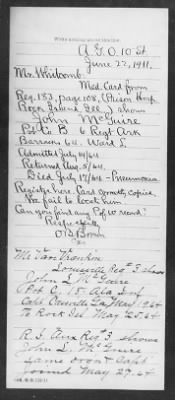 A.G.O. 10 St.
June 22, 1911.
Mr. Whitcomb.
Med. Card from
Reg. 183, page 108, (Prison Hosp
Rock Island Ill.) shows
John McGuire
Pvt Co B 6 Regt Ark
Barracks 64. Ward L
Admitted July 14/64
Returned Aug. 5/64.
Died July 17/64 - Pneumonia
Register here. Card correctly copied.
We fail to locate him.
Can you find any P of W record?
Respectfully
Louisville Reg # 3 shows
John L. McGuire
Pvt. C, 15 Ala Inf
Capt Ga May 19 64
To Rock Isl May 25 64
R. I. Reg # 3 shows
John L. McGuire
same co & capt
joined May 27. 64